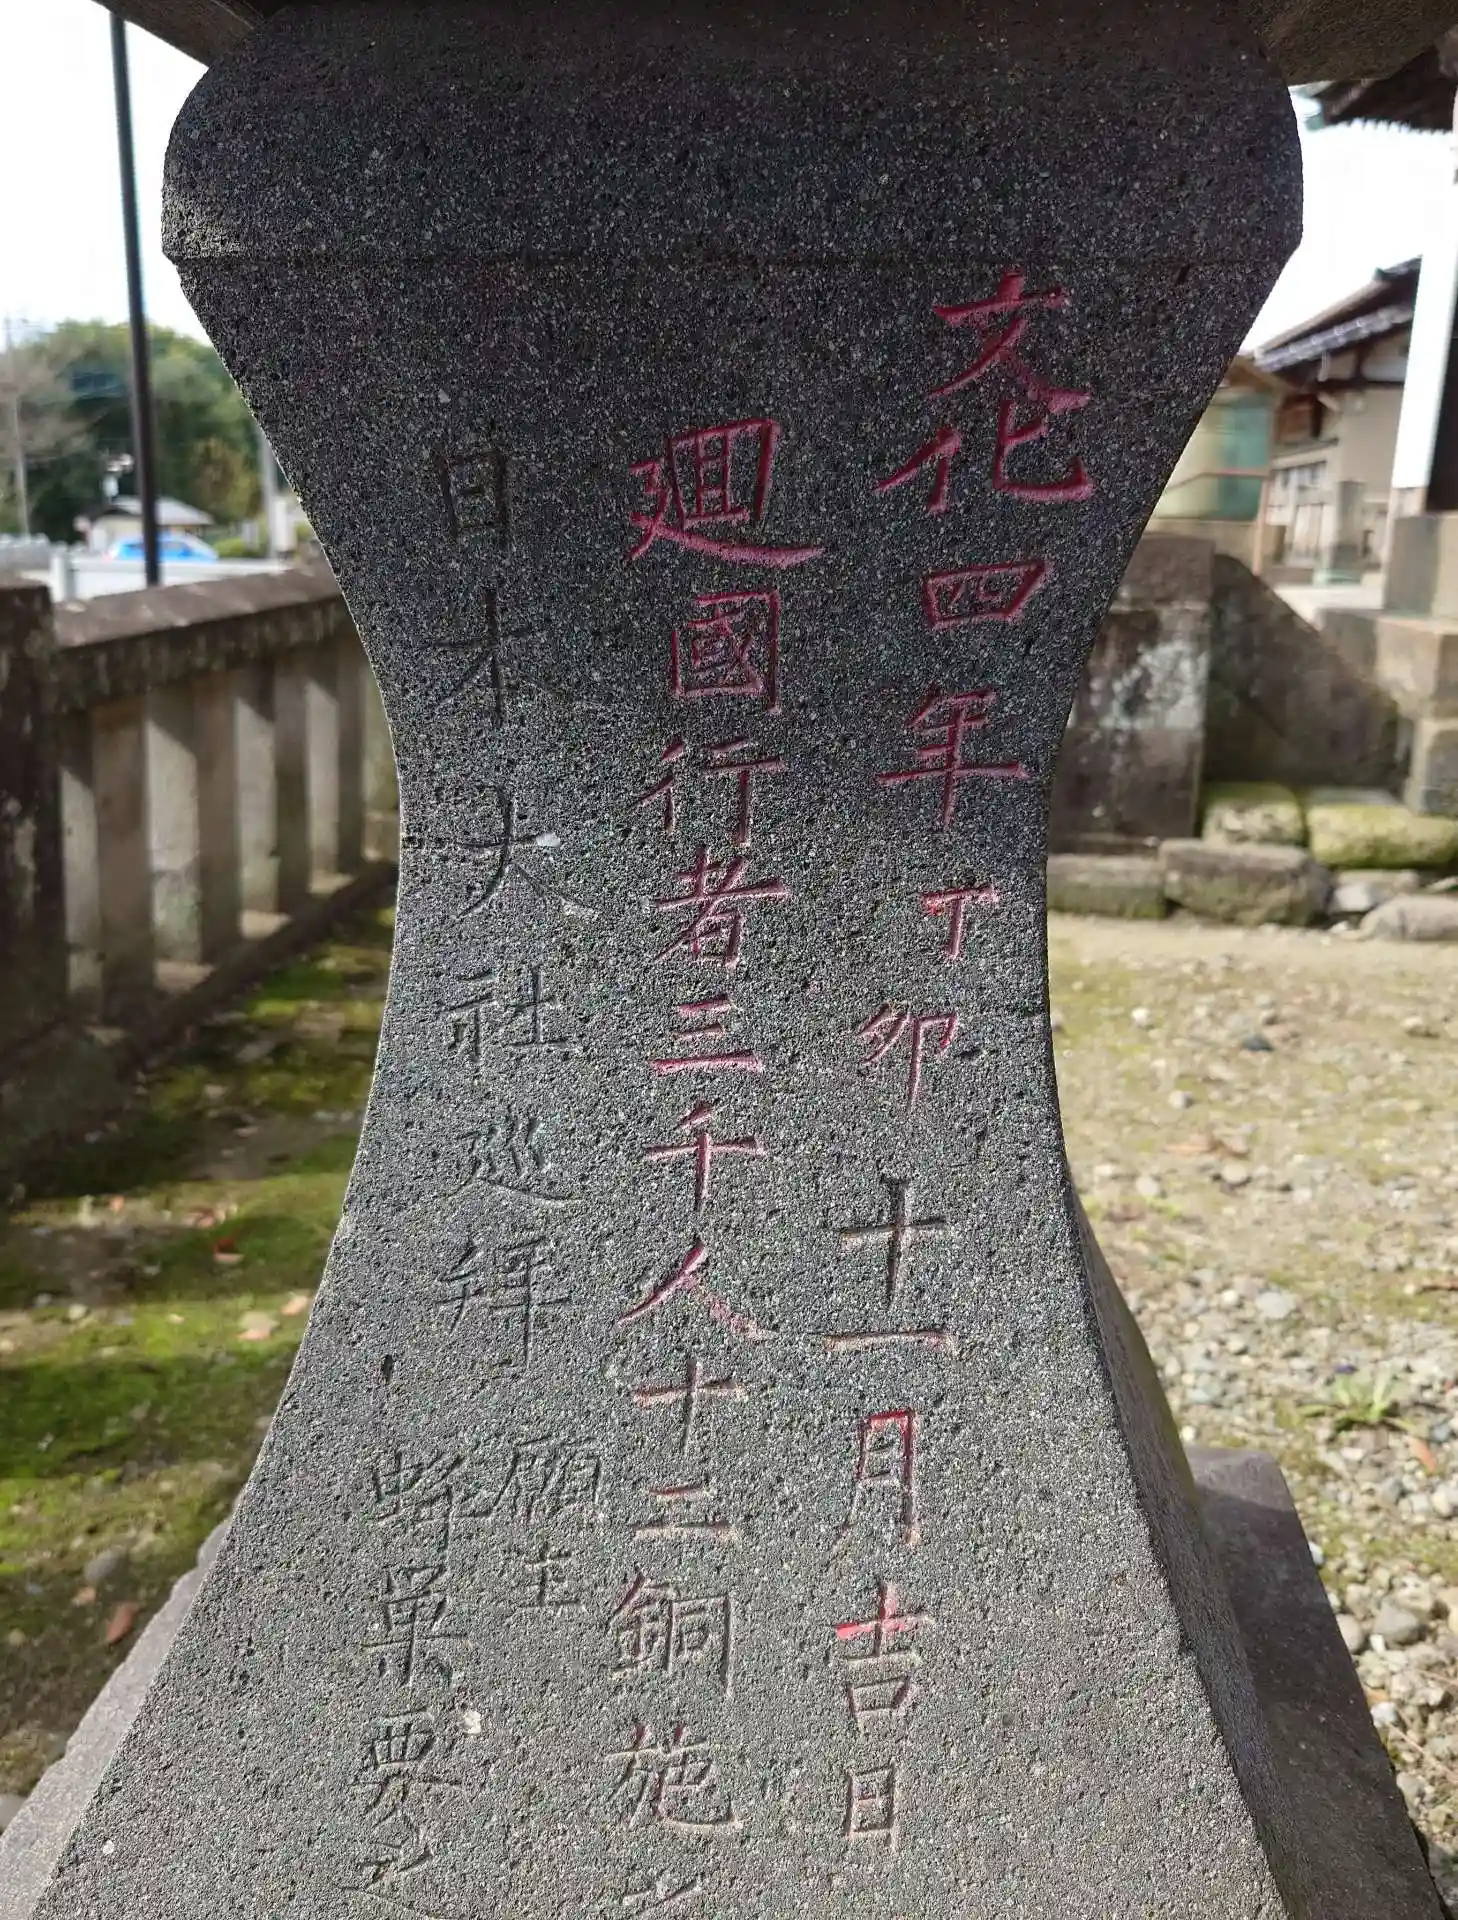 文化四年丁卯十一月吉日
廻國行者三千人十二銅施
日本大社巡拝
願主
蜂巣要